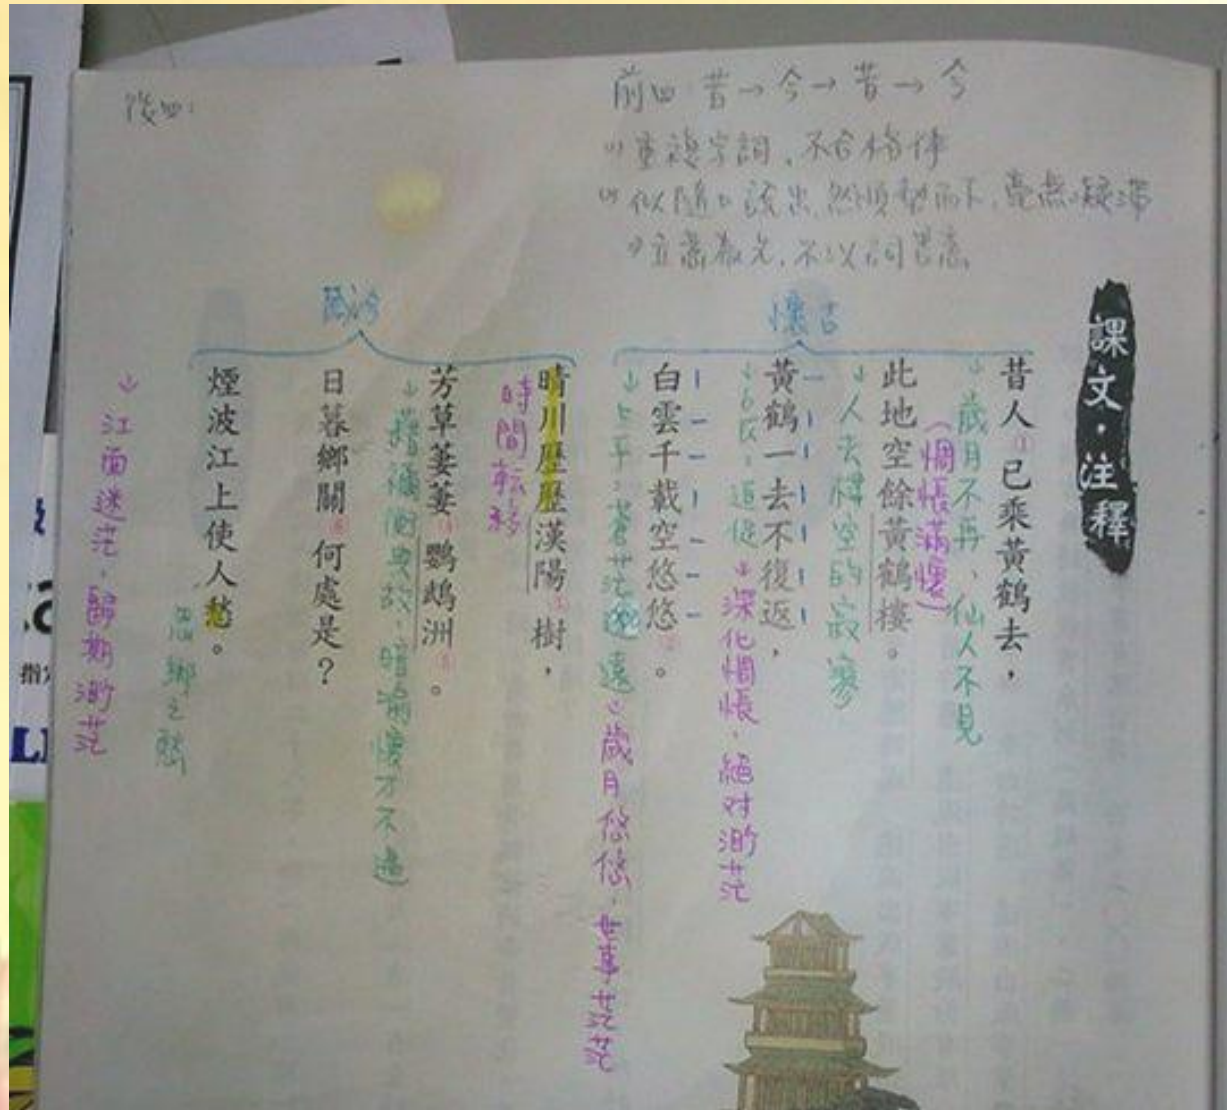 前四:昔→今→昔→今
(1)重複字詞、不合格律
(2)似隨口說出,然順勢而下,毫無凝滯
(3)立意為先,不以詞害意
後四:
課文·注釋
懷古
昔人(1)已乘黃鶴去,
↓歲月不再、仙人不見
(惆悵滿懷)
此地空餘黃鶴樓。
↓人去樓空的寂寥
黃鶴一去不復返,
↓深化惆悵,絕对渺茫
白雲千載空悠悠(2)。
歲月悠悠,世事茫茫
晴川歷歷漢陽(3)樹,
時間転移
芳草萋萋(4)鸚鵡洲(5)。
日暮鄉關(6)何處是?
煙波江上使人愁。
思鄉之愁
↓江面迷茫,歸期渺茫
指